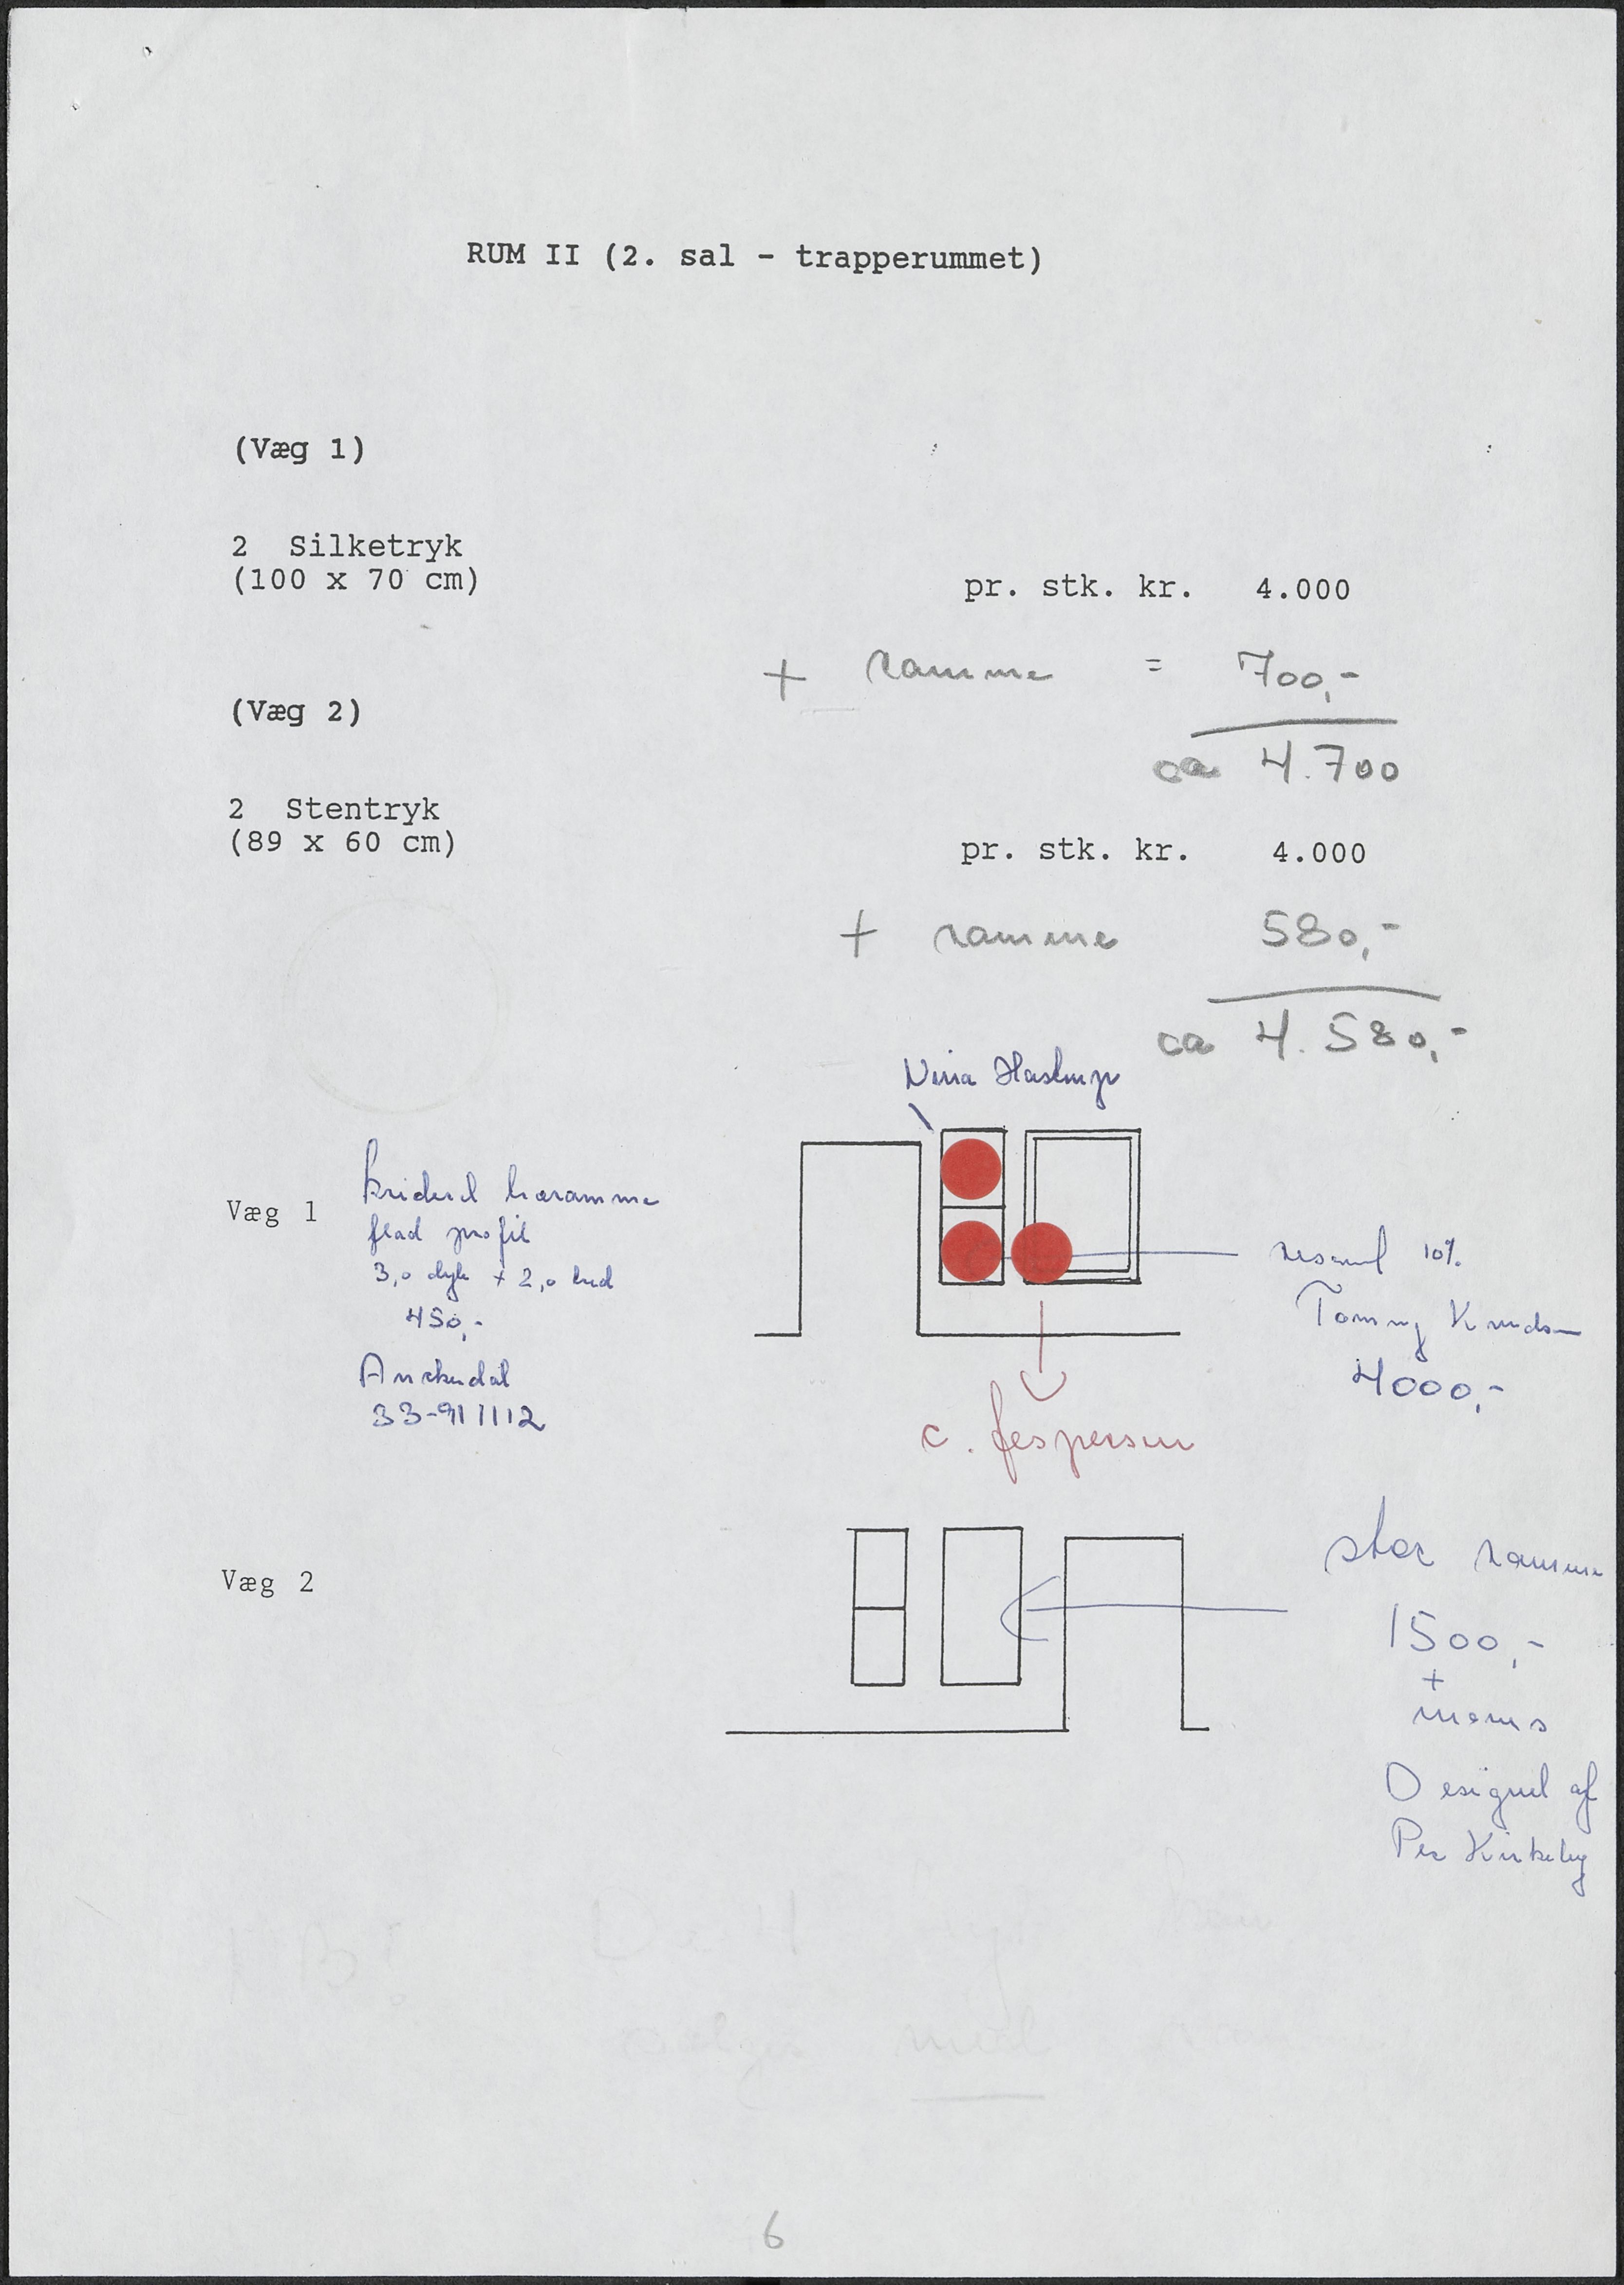 RUM II (2. sal - trapperummet)
(Væg 1)
2 Silketryk
(100 x 70 cm)
pr. stk. kr. 4.000
+ ramme = 700,-
ca 4.700
(Væg 2)
2 Stentryk
(89 x 60 cm)
pr. stk. kr. 4.000
+ ramme 580,-
ca 4.580,-
Nina Hastrup
Væg 1
flad profil
3,0 dyb + 2,0 bred
450,-
33-911112
10%
Tommy Knudsen
4000,-
c. Jespersen
Væg 2
stor ramme
1500,-
+
moms
Designet af
Per Kirkeby
6